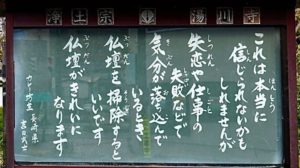 浄土宗 湯川寺
これは本当に
信じられないかも
しれませんが
失恋や仕事の
失敗などで
気分が落込んで
いるとき
仏壇を掃除すると
いいです
仏壇がきれいに
なります